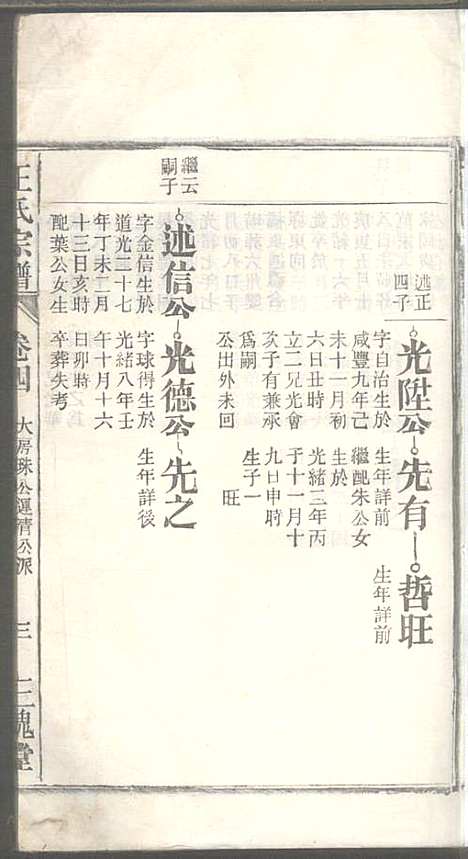 述正
四子
光陞公
先有
哲旺
字自治生於
咸豐九年己
未十一月初
六日丑時
立二兄光會
次子有兼承
爲嗣
公出外未回
生年詳前
繼配朱公女
生於
光緒三年丙
子十一月十
九日申時
生子一
旺
生年詳前
繼云
嗣子
述信公
光德公
先之
字金信生於
道光二十七
年丁未二月
十三日亥時
配葉公女生
卒葬失考
字球得生於
光緒八年壬
午十月十六
日卯時
生年詳後
王氏宗譜
卷四
大房珠公運清公派
三
三槐堂